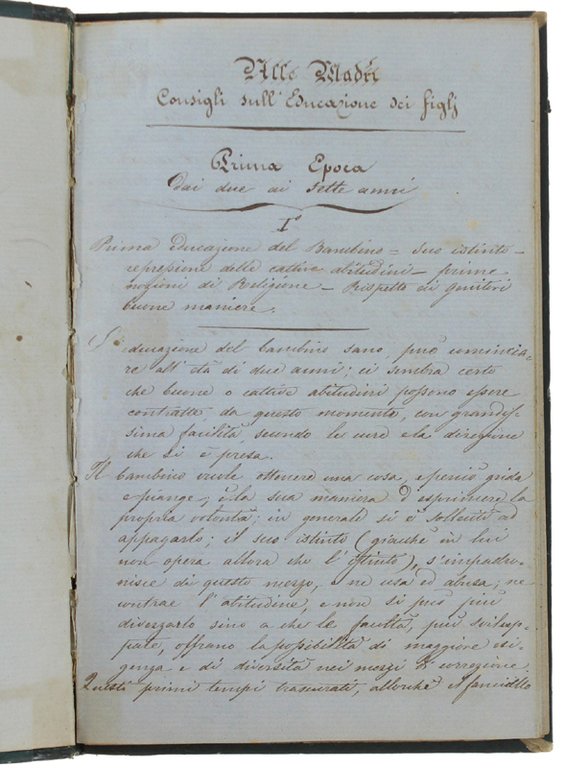 Alle Madri
Consigli sull' Educazione dei figlj
Prima Epoca
Dai due ai sette anni
I°
Prima educazione del Bambino = suo istinto -
repressione delle cattive abitudini - prime
nozioni di Religione - Rispetto ai genitori
buone maniere.
L'educazione del bambino sano, può comincia-
re all' età di due anni; ci sembra certo
che buone o cattive abitudini possono essere
contratte, da questo momento, con grandis-
sima facilità, secondo le cure e la direzione
che si è presa.
Il bambino vuole ottenere una cosa, e perciò grida
e piange; è la sua maniera d'esprimere la
propria volontà; in generale si è solleciti ad
appagarlo; il suo istinto (giacchè in lui
non opera allora che l'istinto), s'impadro-
nisce di questo mezzo, e ne usa ed abusa; ne
contrae l'abitudine, e non si può più
divezzarlo sino a che le facoltà, più svilup-
pate, offrano la possibilità di maggiore esi-
genza e di diversità nei mezzi di correzione.
Questi primi tempi trascurati, allorchè il fanciullo